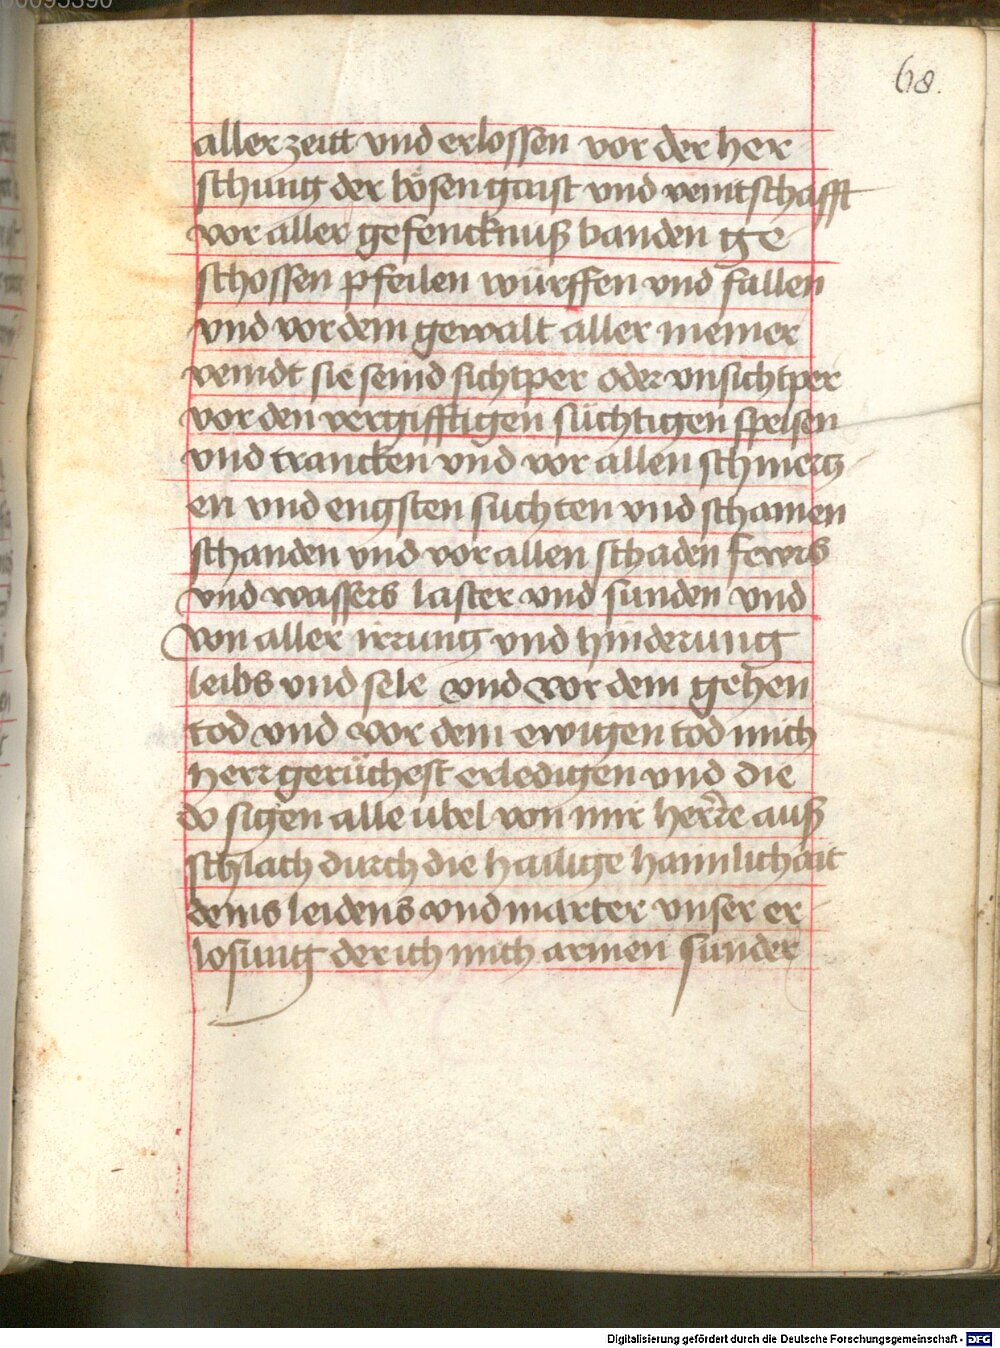 68.
aller zeitt vnd erlossen vor der her
schung der bösen gaist vnd veintschafft
vor aller gefencknuß banden ge
schossen pfeilen würffen vnd fallen
vnd vor dem gewalt aller meiner
veindt sie seind sichtper oder vnsichtper
vor den vergifftigen süchtigen speisen
vnd trancken vnd vor allen schmertz
en vnd engsten suchten vnd schamen
schanden vnd vor allen schaden fewrs
vnd wassers laster vnd sunden vnd
von aller irrung vnd hinderung
leibs vnd sele vnd vor dem gehen
tod vnd vor dem ewigen tod mich
herr gerüchest erledigen vnd die
do sigen alle übel von mir herre auß
schlach durch die hailige haimlichait
deins leidens vnd marter vnser er
losung der ich mich armen sunder
Digitalisierung gefördert durch die Deutsche Forschungsgemeinschaft - DFG